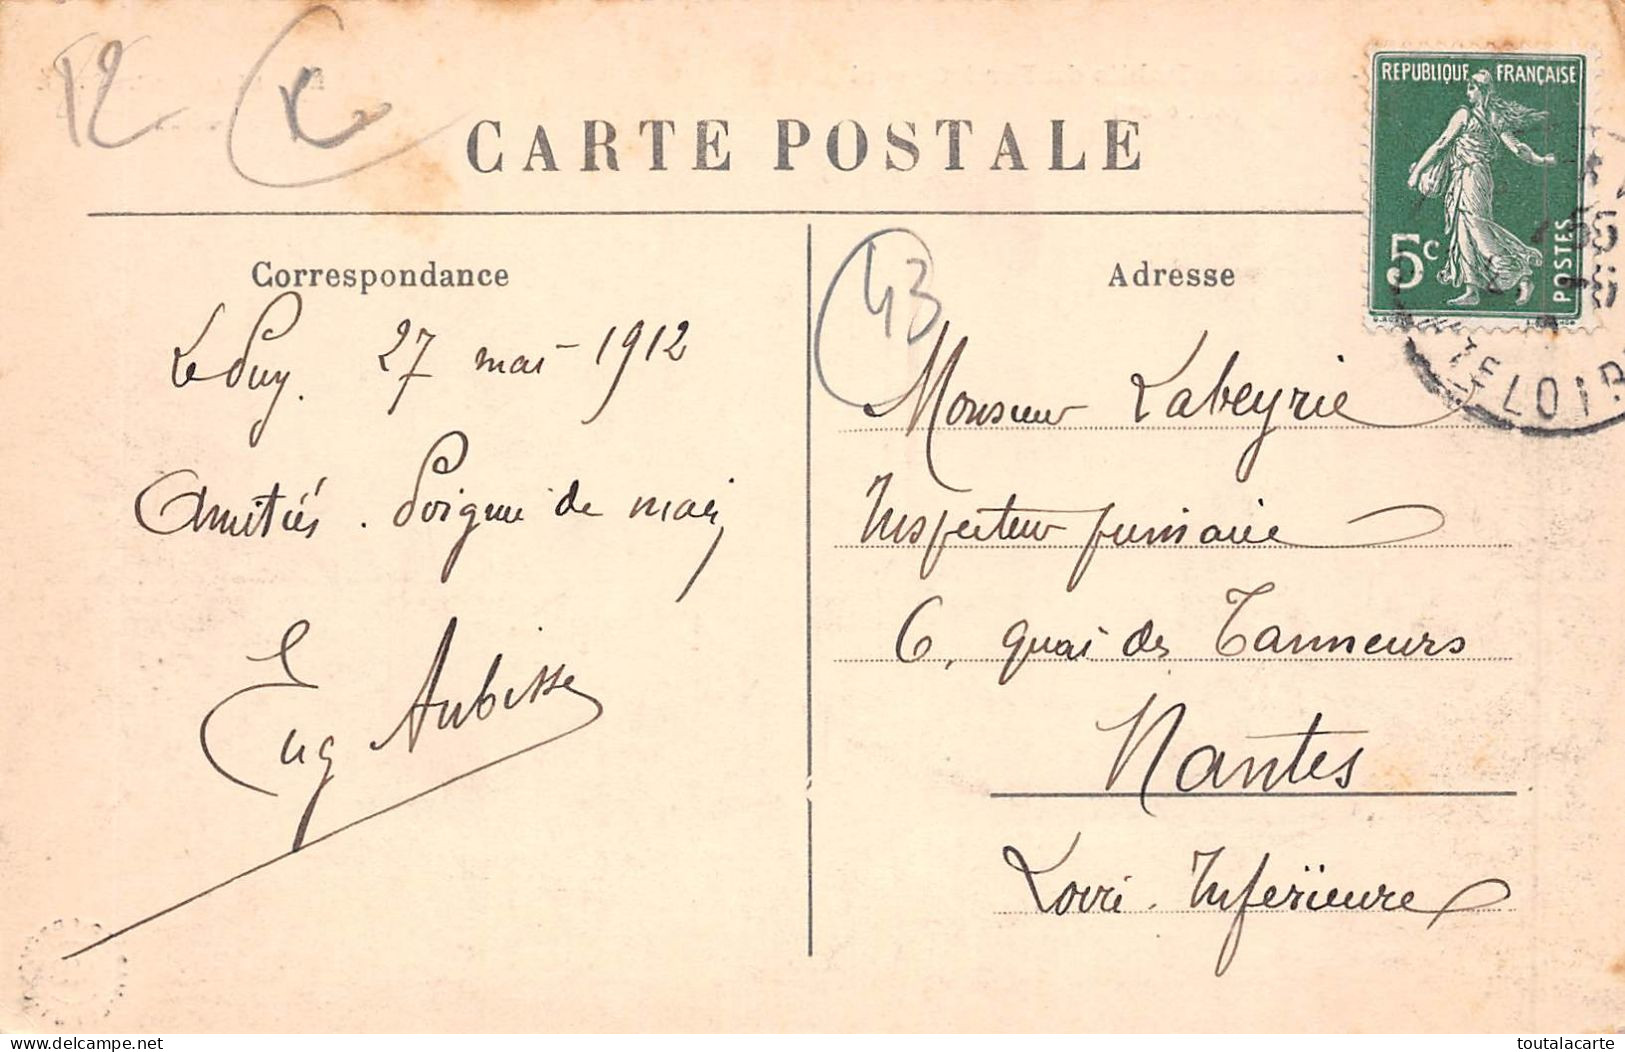 12
CARTE POSTALE
REPUBLIQUE FRANÇAISE
5c
POSTES
TE LOIR
Correspondance
Le Puy. 27 mai 1912
Amitiés. Poignée de main
Eug Aubisse
43
Adresse
Monsieur Labeyrie
Inspecteur primaire
6, quai des Tanneurs
Nantes
Loire-Inférieure
www.delcampe.net
toutalacarte